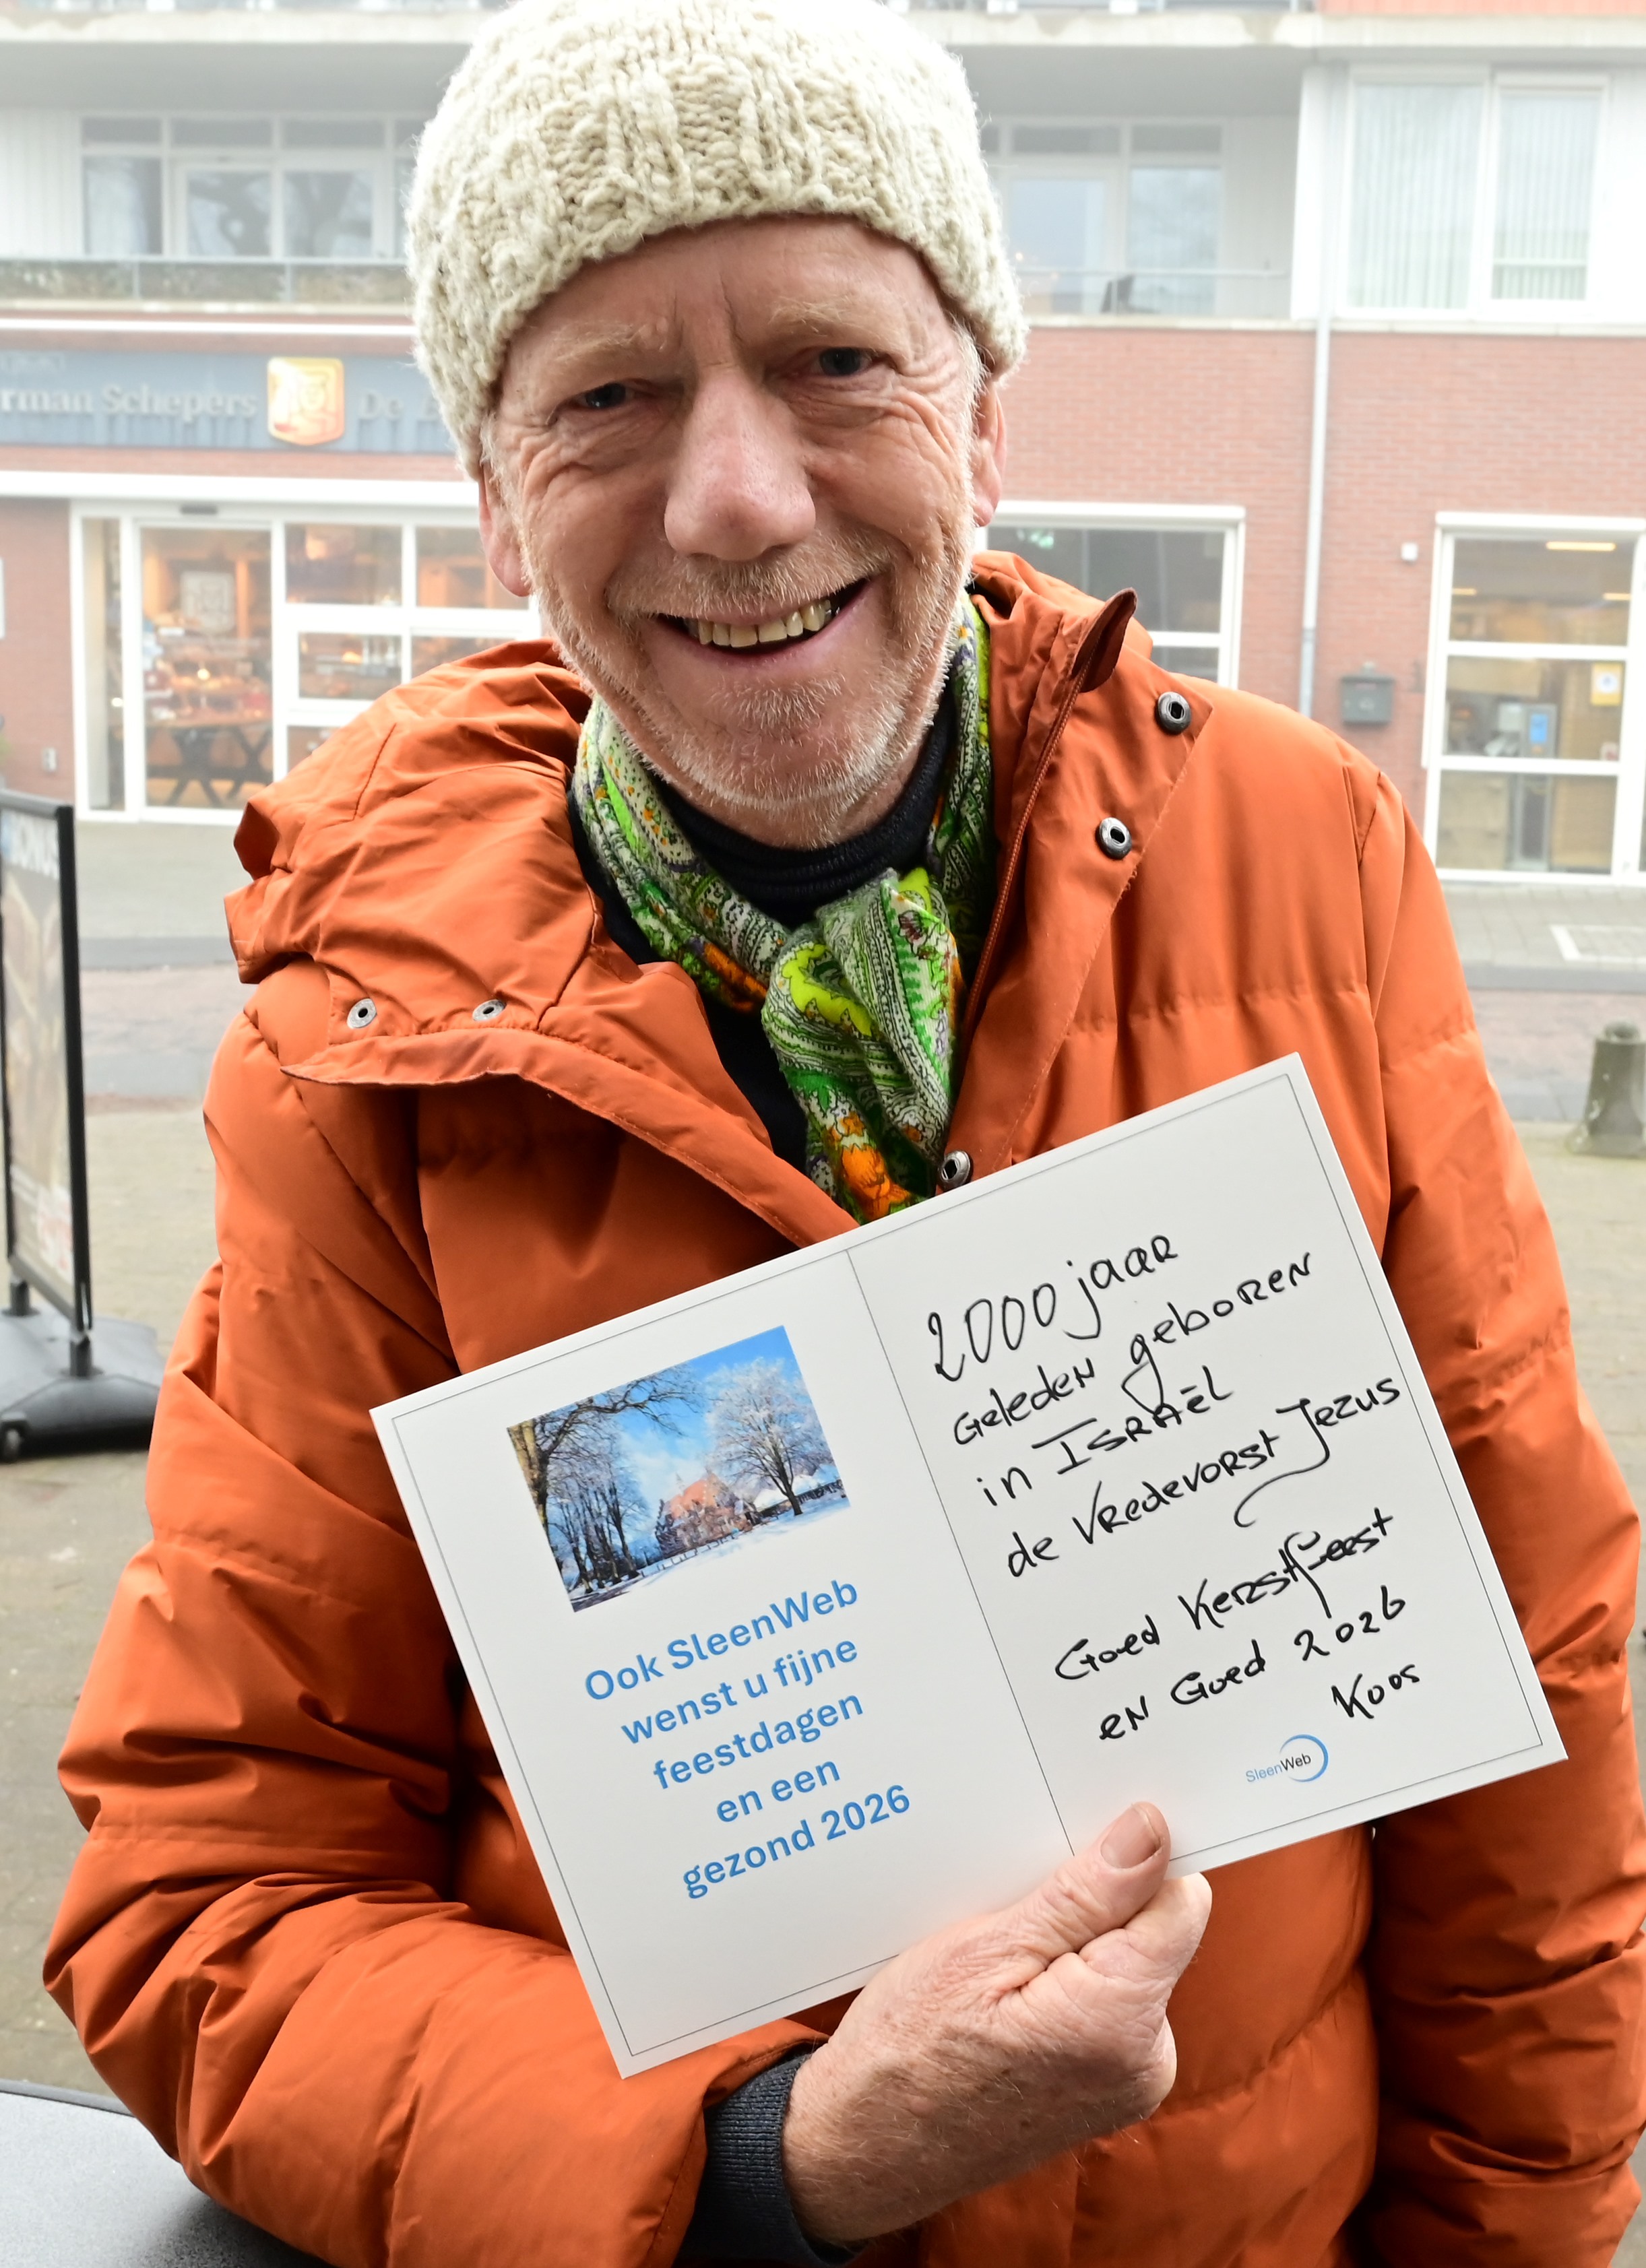 rman Schepers
De
Ook SleenWeb
wenst u fijne
feestdagen
en een
gezond 2026
2000 jaar
geleden geboren
in Israël
de Vredevorst Jezus
Goed Kerstfeest
en Goed 2026
Koos
SleenWeb